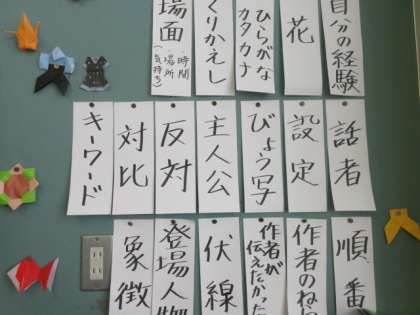 自分の経験
花
ひらがな
カタカナ
くりかえし
場面
(・時間
・場所
・気持ち)
話者
設定
びょう写
主人公
反対
対比
キーワード
順番
作者のねら
作者が
伝えたかった
伏線
登場人物
象徴